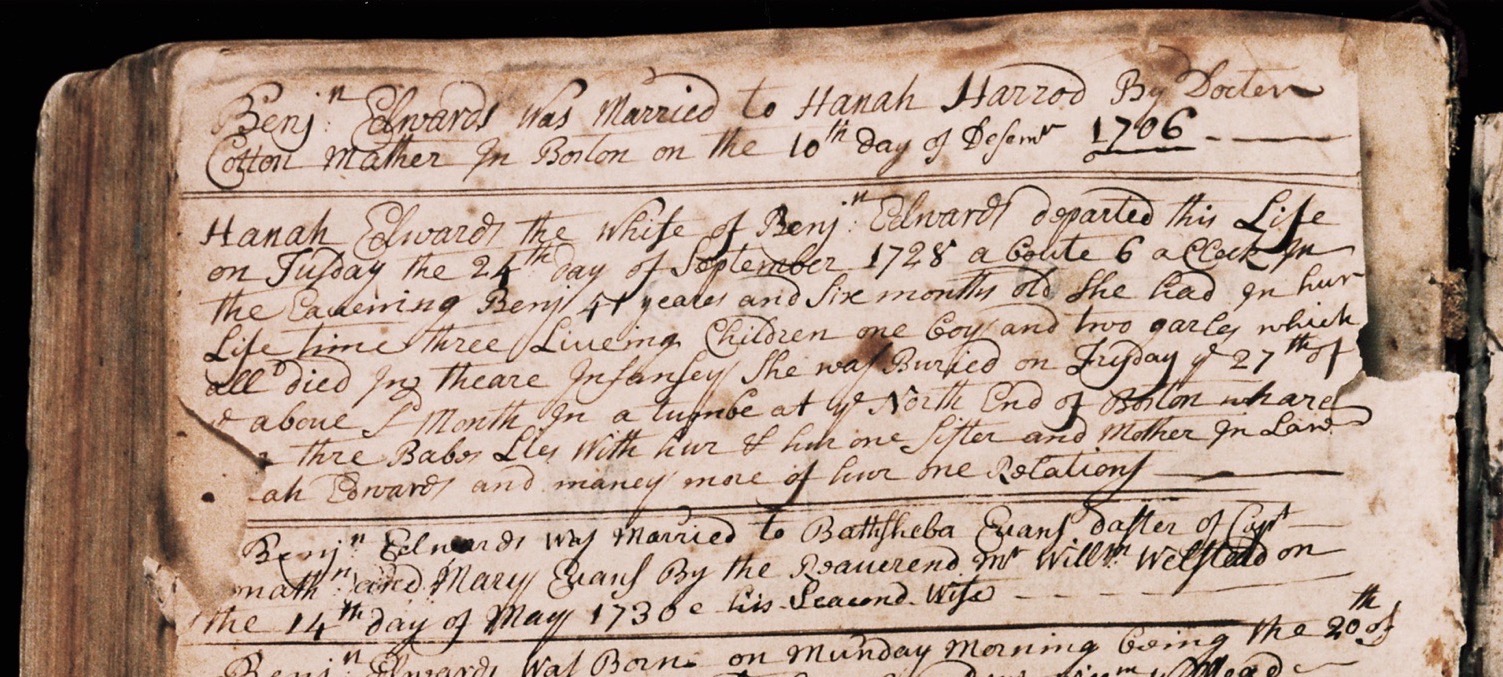 Benjn: Edwards was Married to Hanah Harrod By Docter
Cotton Mather In Boston on the 10th day of Desemr 1706
Hanah Edwards the Whife of Benjn: Edwards departed this Life
on Tusday the 24th day of September 1728 a boute 6 a Clock In
the Eavening Benj 41 yeares and Six months old She had In hur
Life time three Liveing Children one boy and two garles which
all died In theare Infansey She was Buried on Fryday ye 27th of
above sd Month In a tumbe at ye North End of Boston whare
thre Babes Lies With hur & hur one Sister and Mother In Law
ah Edwards and maney more of hur one Relations
Benjn: Edwards was Married to Bathsheba Evans dafter of Capt
nathn and Mary Evans By the Reauerend Mr Willm Welstead on
the 14th day of May 1730 his Seacond Wife
Benjn Edwards Was Born on Munday Morning being the 20th of